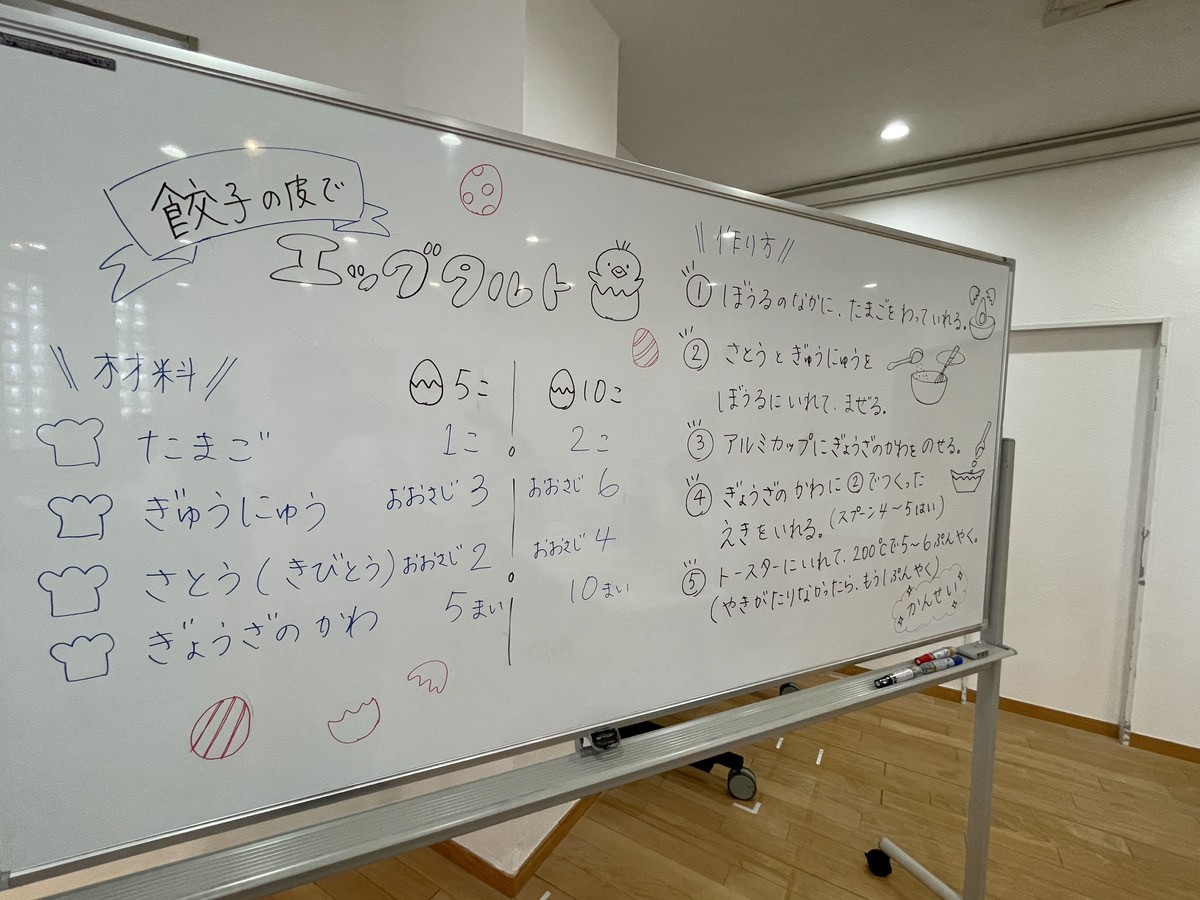 餃子の皮で
エッグタルト
材料
5こ 10こ
たまご 1こ 2こ
ぎゅうにゅう おおさじ3 おおさじ6
さとう(きびとう) おおさじ2 おおさじ4
ぎょうざのかわ 5まい 10まい
作り方
① ぼうるのなかに、たまごをわっていれる。
② さとうとぎゅうにゅうを
ぼうるにいれて、まぜる。
③ アルミカップにぎょうざのかわをのせる。
④ ぎょうざのかわに②でつくった
えきをいれる。(スプーン4〜5はい)
⑤ トースターにいれて、200℃で5〜6ぷんやく。
(やきがたりなかったら、もう1ぷんやく)
かんせい